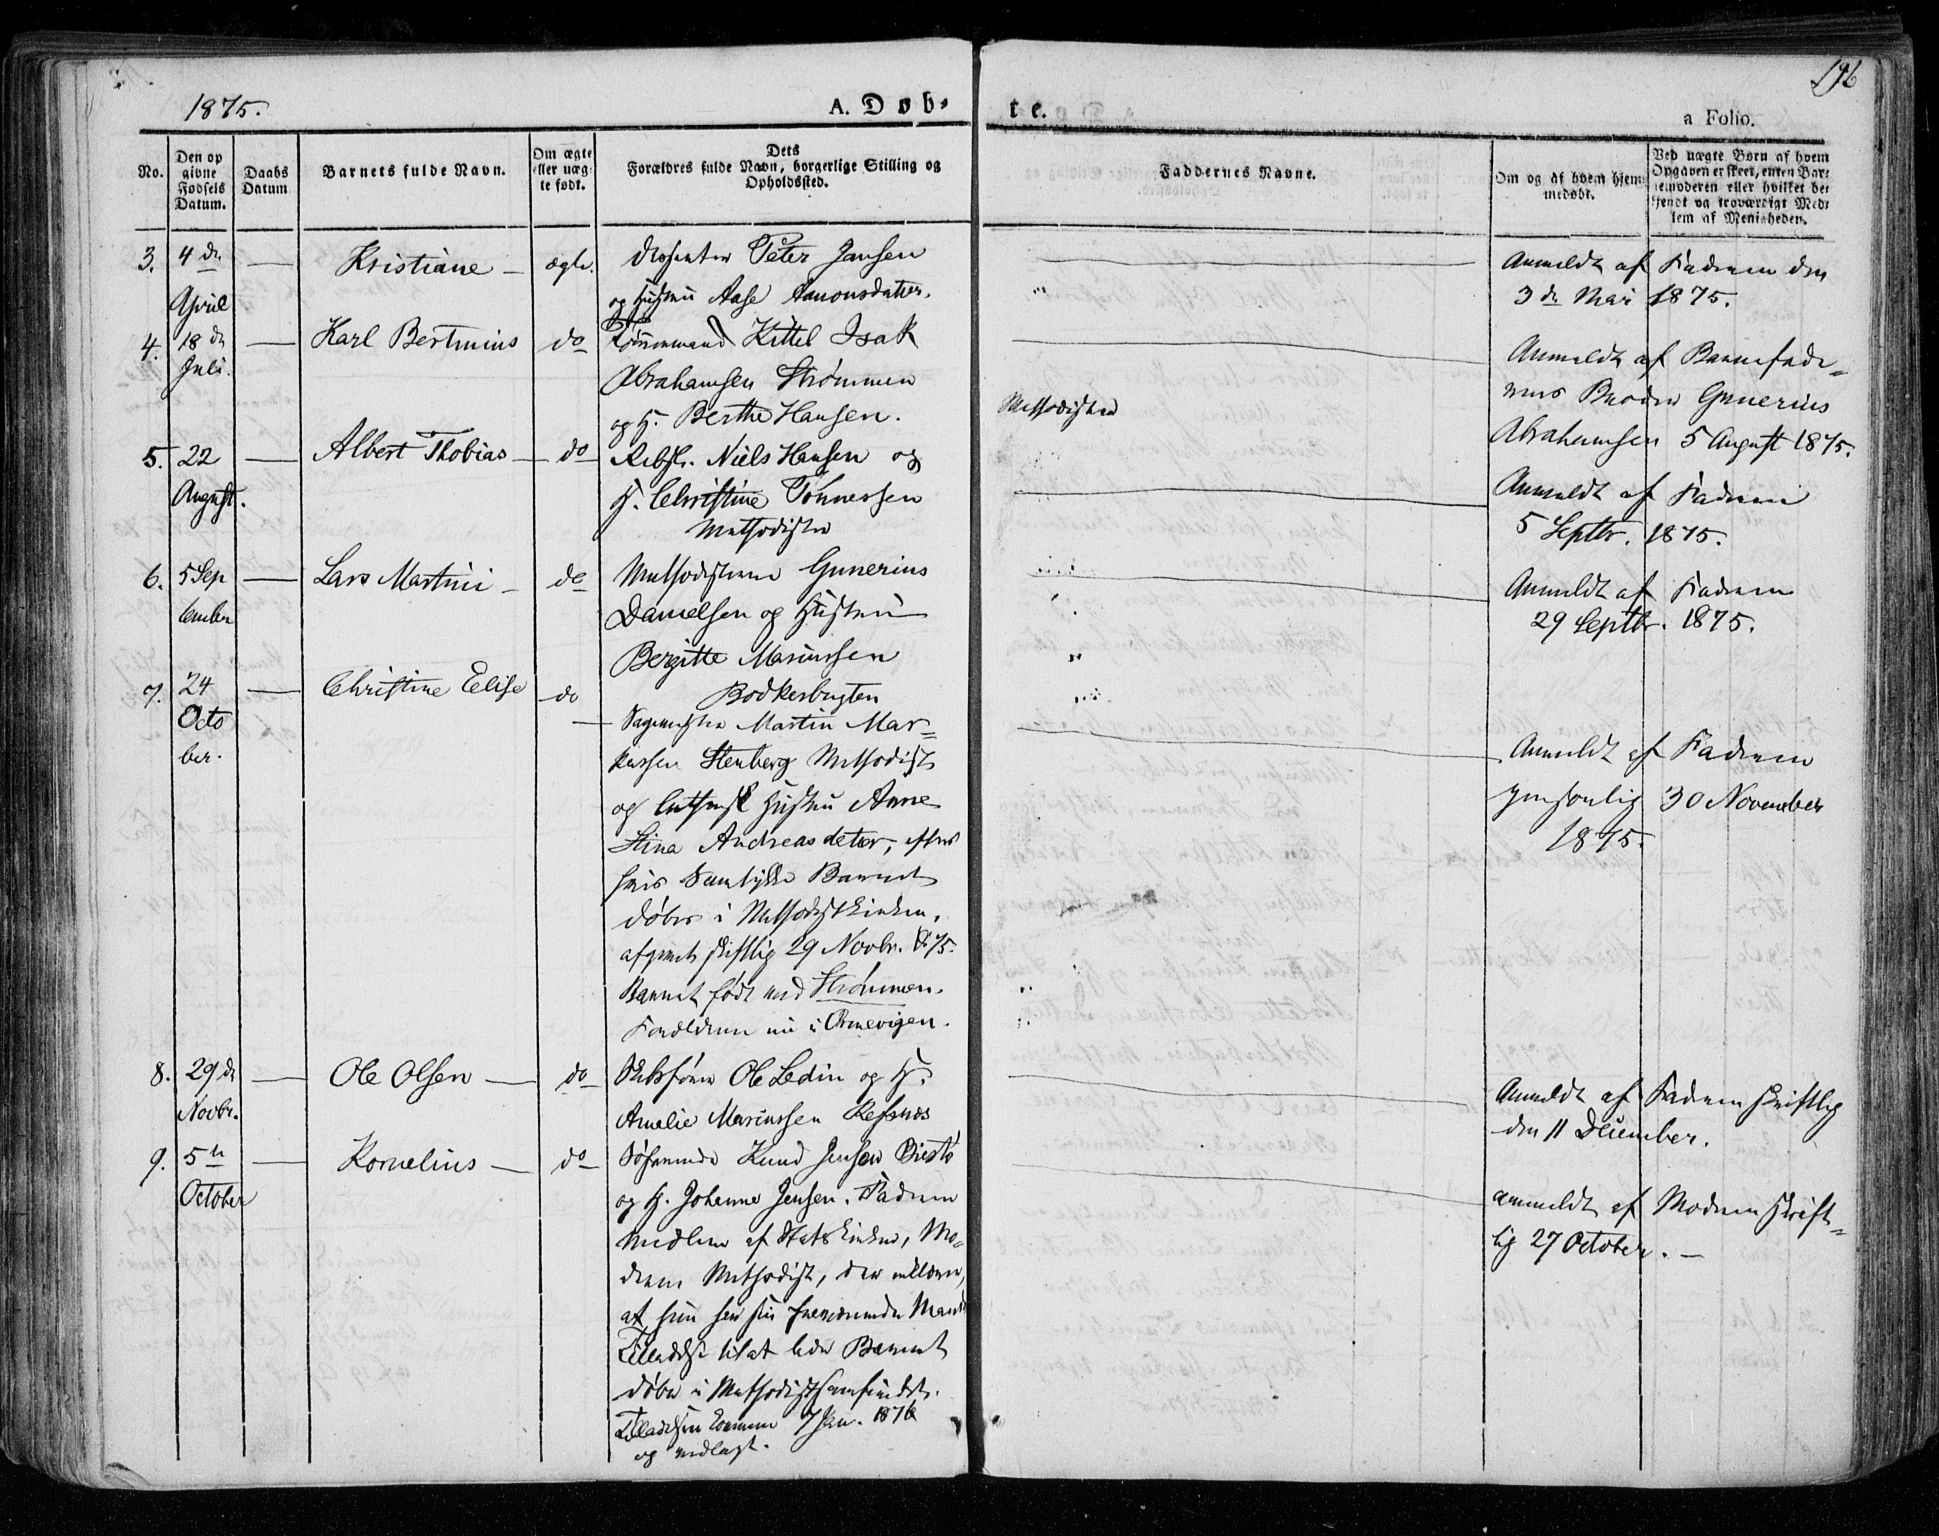 1875.
A. Døb-
te.
196
a Folio.
No.
Den op
givne
Fødsels
Datum.
Daabs
Datum
Barnets fulde Navn.
Om ægte
eller uæg-
te født.
Dets
Forældres fulde Navn, borgerlige Stilling og
Opholdssted.
Faddernes Navne.
Om og af hvem hjem-
medøbt.
Ved uægte Børn af hvem
Opgaven er skeet, enten Bar-
nemoderen eller hvilket be-
kjendt og troværdigt Med-
lem af Menigheden.
3. 4de April — Kristiane — ægte.
Dissenter Peter Jansen
og Hustru Aase Aanonsdatter.
Anmeldt af Faderen den
3de Mai 1875.
4. 18de Juli. — Karl Bertinius do
Kittel Isak
Abrahamsen Strømmen
og H. Berthe Hansen.
Methodister
Anmeldt af Barnefade-
rens Broder Gunerius
Abrahamsen 5 August 1875.
5. 22 August. — Albert Thobias — do
Rebsl. Niels Hansen og
H. Christine Tønnessen
Methodister
Anmeldt af Faderen
5 Septbr. 1875.
6. 5 Sep
tember — Lars Martini — do
Methodisterne Gunerius
Danielsen og Hustru
Bergitte Mariussen
Bodkerbugten
Anmeldt af Faderen
29 Septbr. 1875.
7. 24
Octo
ber. — Christine Elise do
Sagmester Martin Mar=
kussen Stenberg Methodist
og luthersk Hustru Anne
Stina Andreasdatter, efter
hvis Samtykke Barnet
døbes i Methodistkirken,
afgivet skriftlig 29 Novbr. 1875.
Barnet født ved Strømmen.
Forældrene nu i Ormevigen.
Anmeldt af Faderen
personlig 30 November
1875.
8. 29de
Novbr. — Ole Olsen — do
Skibsfører Ole Ledin og H.
Amelie Mariussen Refsnes
Anmeldt af Faderen skriftlig
den 11 December.
9. 5te
October — Kornelius — do
Søfarende Knud Jensen
og H. Johanne Jensen. Faderen
Medlem af Statskirken, Mo=
deren Methodist, der erklærer,
at hun har sin fraværende Mands
Tilladelse til at lade Barnet
døbe i Methodistsamfundet.
Tilladelsen kommen 7 Jan. 1876
og vedlagt.
anmeldt af Moderen skrift=
lig 27 October. —